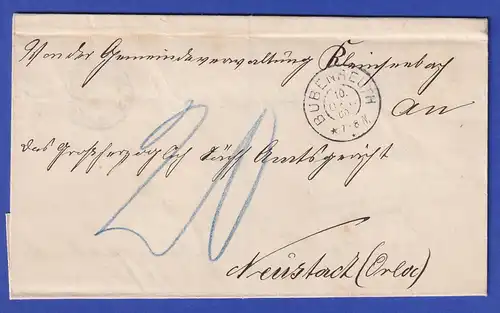 Von der Gemeindeverwaltung Kleinsenbach
BUBENREUTH
10.
* 7-8 N.
An
das Großherzoglich Sächs Amtsgericht
20
Neustadt (Orla)